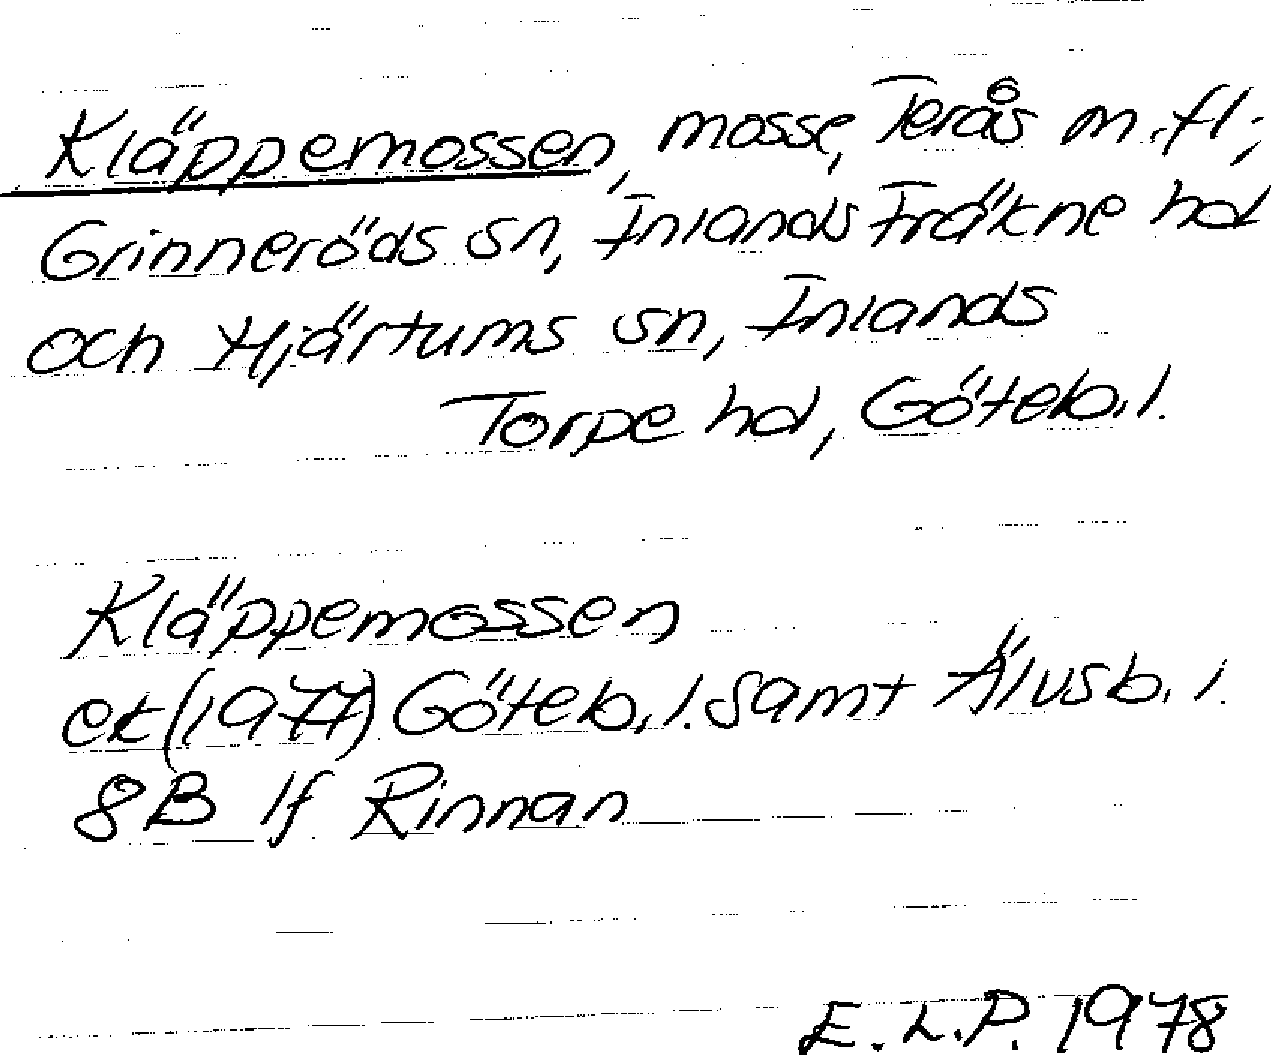 Kläppemossen, mosse, Terås m.fl.,
Grinneröds sn, Inlands Fräkne hd
och Hjärtums sn, Inlands
Torpe hd, Göteb.l.
Kläppemossen
ek (1977) Göteb.l. samt Älvsb.l.
8B 1f Rinnan
E.L.P. 1978